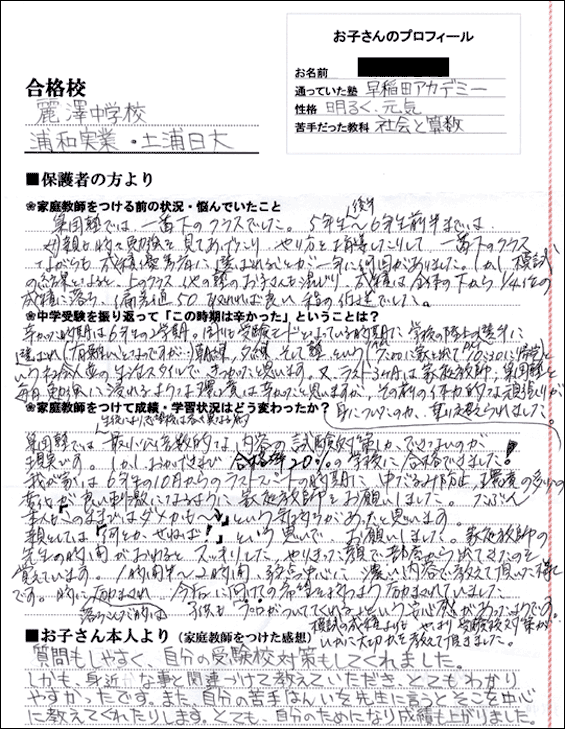 お子さんのプロフィール
お名前
通っていた塾 早稲田アカデミー
性格 明るく、元気
苦手だった教科 社会と算数
合格校
麗澤中学校
浦和実業・土浦日大
■保護者の方より
❀家庭教師をつける前の状況・悩んでいたこと
集団塾では、一番下のクラスでした。5年生後半〜6年生前半までは、
母親も時々勉強を見てあげたり、やり方を指導したりして、一番下のクラス
ながらも、成績優秀者に選ばれることが一年に何回かありました。しかし、模試
の結果となると、上のクラス、他の塾のお子さんも混じり、成績は全体の下から1/4位の
成績に落ち、偏差値50取れれば良い程の位置でした。
❀中学受験を振り返って「この時期は辛かった」ということは?
辛かった時期は6年生の2学期。周りは受験モードとなっている時期に学校の陸上選手に
選ばれ(有難いことなのですが…)朝練、夕練、そして塾、という(7:00に家を出て10:30に帰宅)と
いう社会人並の生活スタイルで、きつかったと思います。又、ラスト3ヶ月は家庭教師、集団塾と
毎日勉強に浸れるような環境は辛かったと思いますが、その前の体力的な頑張りが
身についたのか、乗り越えられました。
❀家庭教師をつけて成績・学習状況はどう変わったか?
生徒により志望校は各々異なる為
集団塾では最小公倍数的な内容の試験対策しかできないのが
現実です。しかし、おかげさまで合格率20%の学校に合格できました!
我が家は6年生の10月からのラストスパートの時期に、中だるみ防止、環境の多少の
変化が良い刺激になるように家庭教師をお願いしました。たぶん
本人も「このままではダメかも〜」という気持ちがあったと思います。
親としては「何とか、せねば!」という思いで、お願いしました。家庭教師の
先生の時間がおわると、スッキリした、やりきった顔で部屋から出てきたのを
覚えています。1時間半〜2時間、弱点中心に濃い内容で教えて頂いた様
です。時にはげまされ、今后に向けての希望を持つようはげまされていました。
落ちこんだ時には、子供も「プロがついてくれてる」という安心感があったようです。
模試の成績よりも、やはり受験校対策が
いかに大切かを教えて頂きました。
■お子さん本人より(家庭教師をつけた感想)
質問もしやすく、自分の受験校対策もしてくれました。
しかも、身近な事と関連づけて教えていただき、とてもわかり
やすかったです。また、自分の苦手はんいを先生に言うとそこを中心
に教えてくれたりします。とても、自分のためになり成績も上がりました。